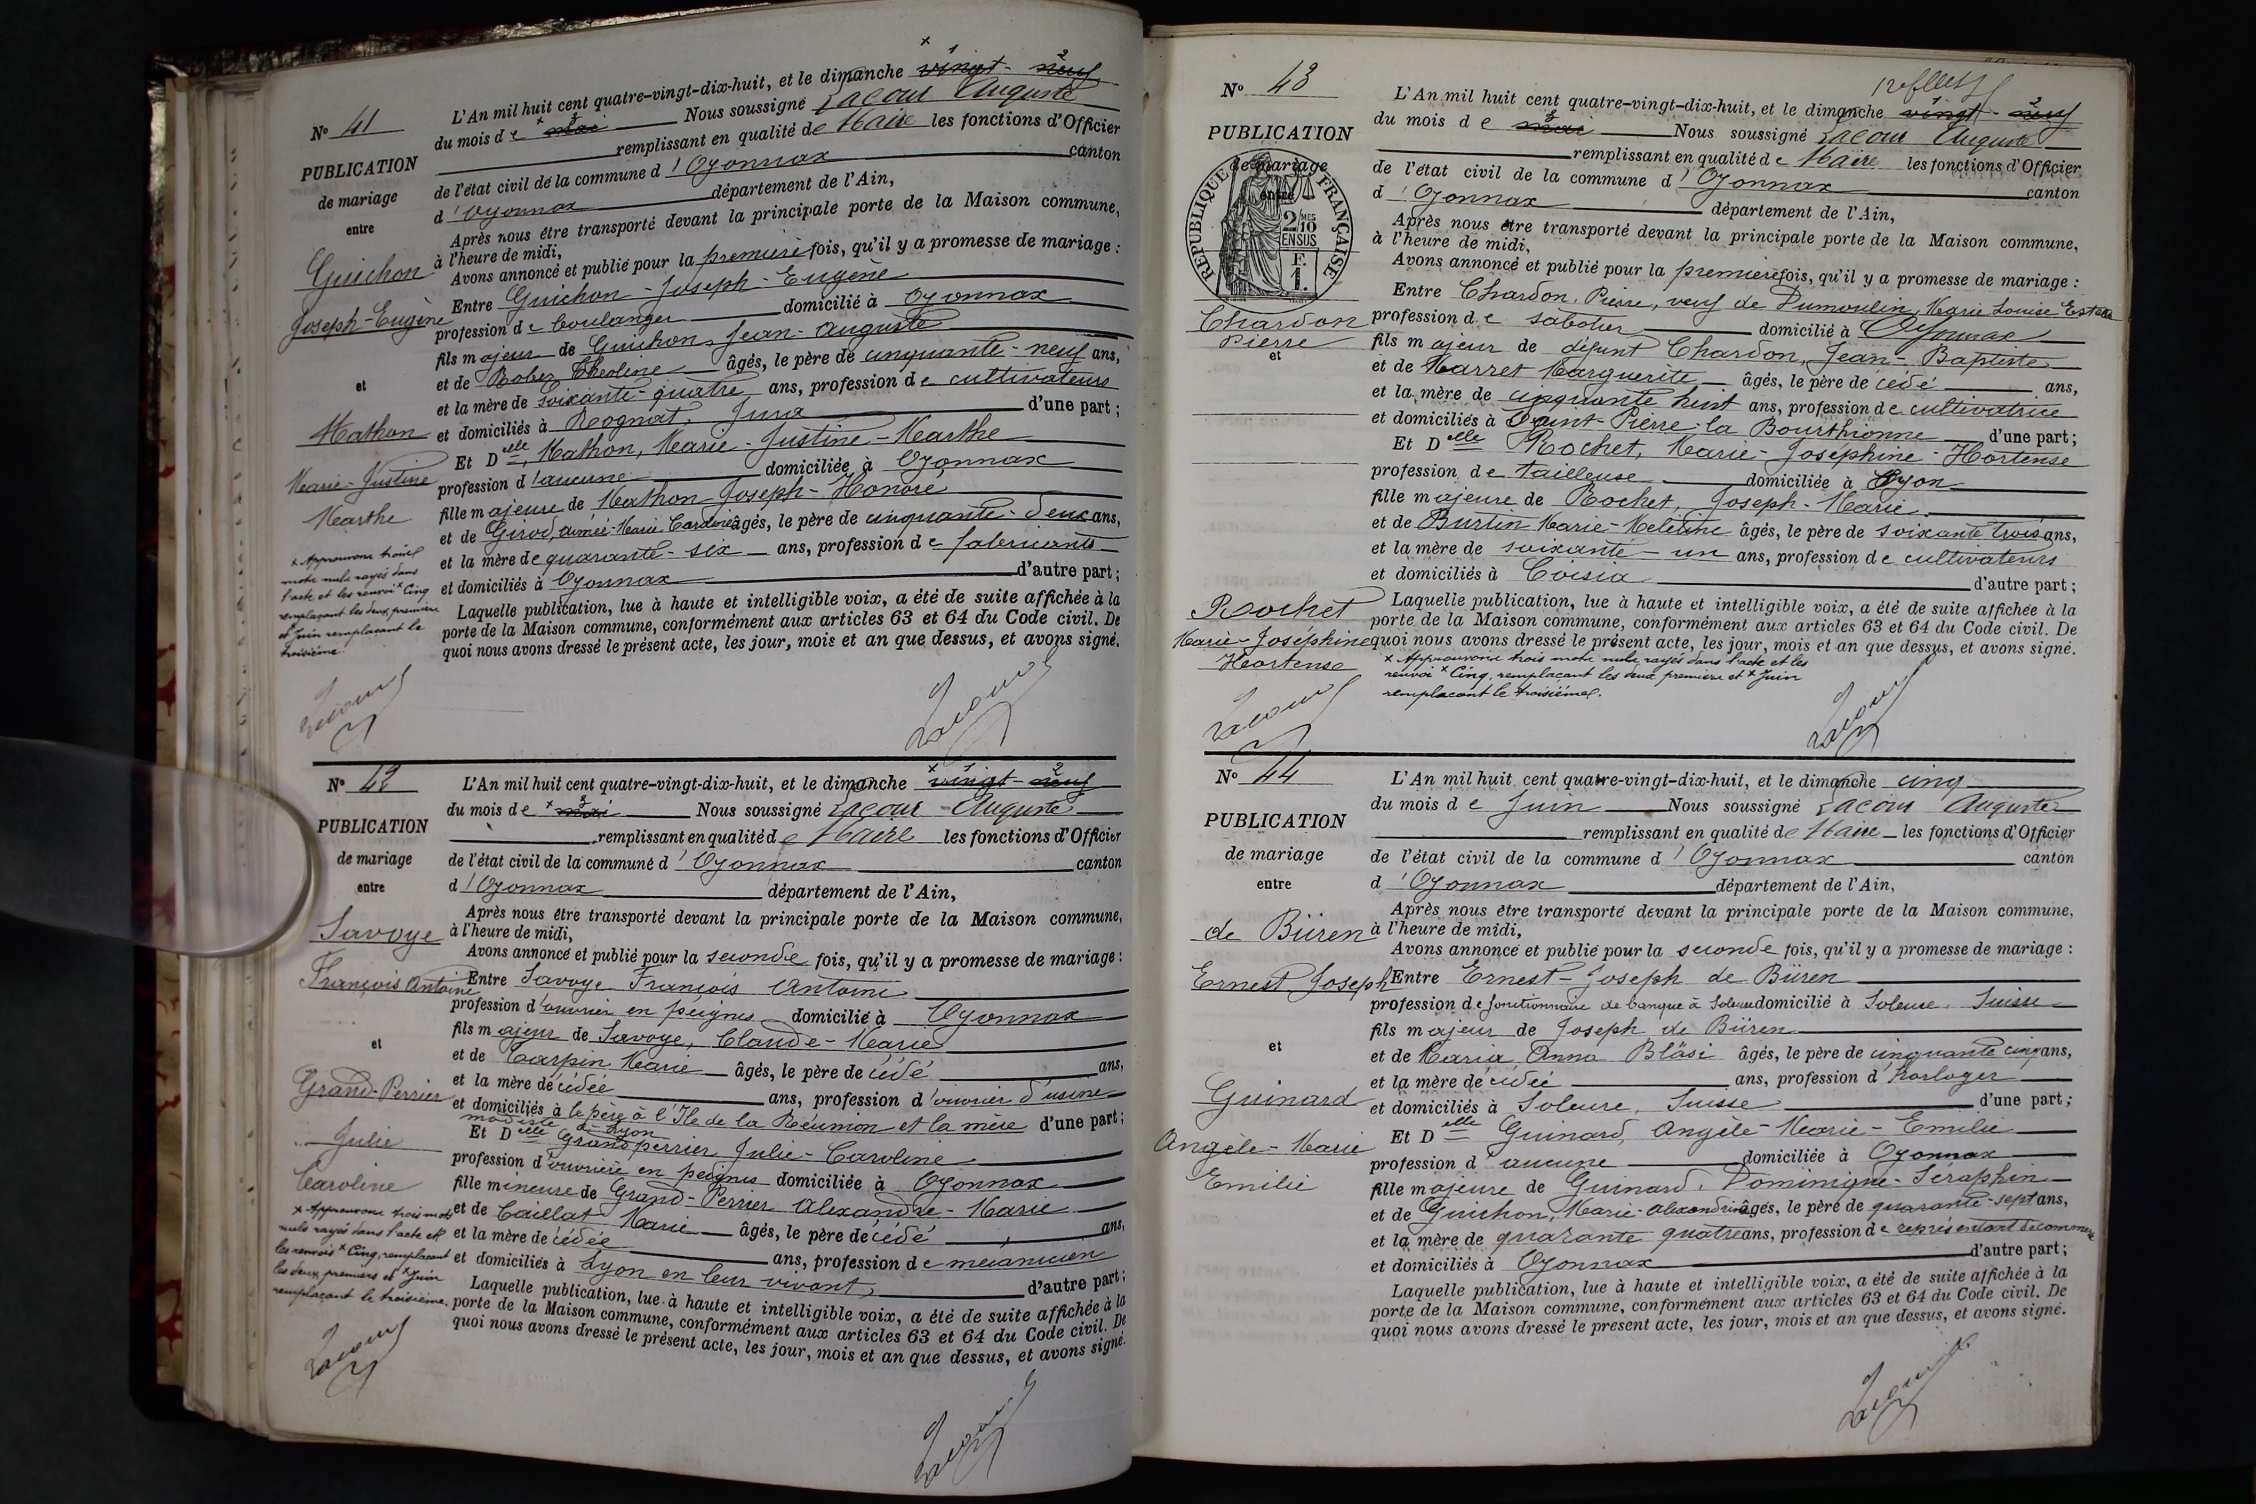 N° 41
PUBLICATION
de mariage
entre
Guichon
Joseph-Eugène
et
Mathon
Marie-Justine
Marthe
x Approuvons trois
mots nuls rayés dans
l'acte et les renvoi x Cinq
remplaçant les deux premiers
et Juin remplaçant le
troisième.
Lacour
L'An mil huit cent quatre-vingt-dix-huit, et le dimanche x vingt - neuf
du mois de x mai Nous soussigné Lacour Auguste
remplissant en qualité de Maire les fonctions d'Officier
de l'état civil de la commune d'Oyonnax canton
d'Oyonnax département de l'Ain,
Après nous être transporté devant la principale porte de la Maison commune,
à l'heure de midi,
Avons annoncé et publié pour la première fois, qu'il y a promesse de mariage :
Entre Guichon - Joseph - Eugène
profession de boulanger domicilié à Oyonnax
fils majeur de Guichon, Jean-Auguste
et de Rober Théoline âgés, le père de cinquante-neuf ans,
et la mère de soixante-quatre ans, profession de cultivateurs
et domiciliés à Rognat, Jura d'une part ;
Et Delle Mathon, Marie-Justine-Marthe
profession d'aucune domiciliée à Oyonnax
fille majeure de Mathon Joseph-Honoré
et de Girod, Aimée-Marie Caroline âgés, le père de cinquante-deux ans,
et la mère de quarante-six ans, profession de fabricants
et domiciliés à Oyonnax d'autre part ;
Laquelle publication, lue à haute et intelligible voix, a été de suite affichée à la
porte de la Maison commune, conformément aux articles 63 et 64 du Code civil. De
quoi nous avons dressé le présent acte, les jour, mois et an que dessus, et avons signé.
Lacour
N° 42
PUBLICATION
de mariage
entre
Savoye
François Antoine
et
Grand-Perrier
Julie
Caroline
x Approuvons trois mots
nuls rayés dans l'acte et
les renvois x Cinq, remplaçant
les deux premiers et x Juin
remplaçant le troisième.
Lacour
L'An mil huit cent quatre-vingt-dix-huit, et le dimanche x vingt - neuf
du mois de x mai Nous soussigné Lacour Auguste
remplissant en qualité de Maire les fonctions d'Officier
de l'état civil de la commune d'Oyonnax canton
d'Oyonnax département de l'Ain,
Après nous être transporté devant la principale porte de la Maison commune,
à l'heure de midi,
Avons annoncé et publié pour la seconde fois, qu'il y a promesse de mariage :
Entre Savoye François Antoine
profession d'ouvrier en peignes domicilié à Oyonnax
fils majeur de Savoye, Claude-Marie
et de Carpin Marie âgés, le père décédé ans,
et la mère décédée ans, profession d'ouvrier d'usine
et domiciliés à le père à l'Ile de la Réunion et la mère d'une part ;
modiste à Lyon
Et Delle Grand perrier Julie-Caroline
profession d'ouvrière en peignes domiciliée à Oyonnax
fille mineure de Grand-Perrier Alexandre-Marie
et de Caillat Marie âgés, le père décédé ans,
et la mère décédée ans, profession de mécanicien
et domiciliés à Lyon en leur vivant, d'autre part ;
Laquelle publication, lue à haute et intelligible voix, a été de suite affichée à la
porte de la Maison commune, conformément aux articles 63 et 64 du Code civil. De
quoi nous avons dressé le présent acte, les jour, mois et an que dessus, et avons signé.
Lacour
N° 43
PUBLICATION
de mariage
entre
REPUBLIQUE FRANÇAISE
2/10 MES
EN SUS
F.
1.
Chardon
Pierre
et
Rochet
Marie-Joséphine
Hortense
Lacour
L'An mil huit cent quatre-vingt-dix-huit, et le dimanche vingt - neuf
du mois de mai Nous soussigné Lacour Auguste
remplissant en qualité de Maire les fonctions d'Officier
de l'état civil de la commune d'Oyonnax canton
d'Oyonnax département de l'Ain,
Après nous être transporté devant la principale porte de la Maison commune,
à l'heure de midi,
Avons annoncé et publié pour la première fois, qu'il y a promesse de mariage :
Entre Chardon, Pierre, veuf de Dumoulin, Marie Louise
profession de sabotier domicilié à Oyonnax
fils majeur de défunt Chardon, Jean-Baptiste
et de Marret Marguerite âgés, le père décédé ans,
et la mère de cinquante huit ans, profession de cultivatrice
et domiciliés à Saint-Pierre-la Bourlhonne d'une part ;
Et Delle Rochet, Marie-Joséphine-Hortense
profession de tailleuse domiciliée à Lyon
fille majeure de Rochet, Joseph-Marie
et de Burtin Marie-Meletine âgés, le père de soixante trois ans,
et la mère de soixante-un ans, profession de cultivateurs
et domiciliés à Coisia d'autre part ;
Laquelle publication, lue à haute et intelligible voix, a été de suite affichée à la
porte de la Maison commune, conformément aux articles 63 et 64 du Code civil. De
quoi nous avons dressé le présent acte, les jour, mois et an que dessus, et avons signé.
x Approuvons trois mots nuls rayés dans l'acte et les
renvoi x Cinq, remplaçant les deux premiers et x Juin
remplaçant le troisième.
Lacour
N° 44
PUBLICATION
de mariage
entre
de Büren
Ernest Joseph
et
Guinard
Angèle-Marie
Emilie
L'An mil huit cent quatre-vingt-dix-huit, et le dimanche cinq
du mois de Juin Nous soussigné Lacour Auguste
remplissant en qualité de Maire les fonctions d'Officier
de l'état civil de la commune d'Oyonnax canton
d'Oyonnax département de l'Ain,
Après nous être transporté devant la principale porte de la Maison commune,
à l'heure de midi,
Avons annoncé et publié pour la seconde fois, qu'il y a promesse de mariage :
Entre Ernest-Joseph de Büren
profession de fonctionnaire de banque à Soleure domicilié à Soleure, Suisse
fils majeur de Joseph de Büren
et de Maria Anna Bläsi âgés, le père de cinquante cinq ans,
et la mère décédée ans, profession d'horloger
et domiciliés à Soleure, Suisse d'une part ;
Et Delle Guinard, Angèle-Marie-Emilie
profession d'aucune domiciliée à Oyonnax
fille majeure de Guinard, Dominique-Séraphin
et de Guichon, Marie-Alexandrine âgés, le père de quarante-sept ans,
et la mère de quarante quatre ans, profession de représentant de commerce
et domiciliés à Oyonnax d'autre part ;
Laquelle publication, lue à haute et intelligible voix, a été de suite affichée à la
porte de la Maison commune, conformément aux articles 63 et 64 du Code civil. De
quoi nous avons dressé le présent acte, les jour, mois et an que dessus, et avons signé.
Lacour